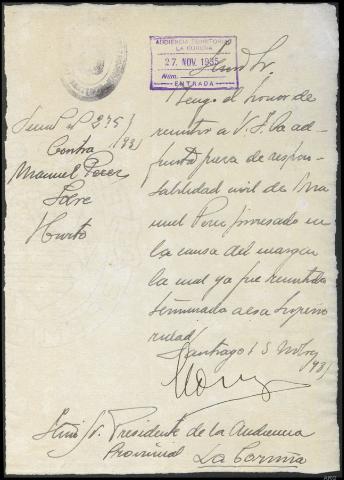 AUDIENCIA TERRITORIAL
LA CORUÑA
27 NOV. 1935
Núm.
ENTRADA
Contra
Manuel Perez
Sobre
Hurto
Tengo el honor de
remitir a V. I. la ad-
junta pieza de respon-
sabilidad civil de Ma
nuel Perez procesado en
la causa del margen
la cual ya fue remitida
terminada a esa Superio
ridad
Santiago
Presidente de la Audiencia
Provincial La Coruña